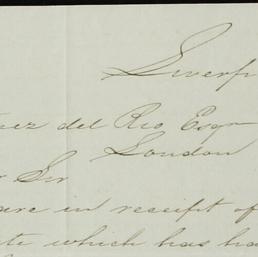 Liverp
uez del Rio Esqr
London
r Sir
are in receipt of
te which has ha